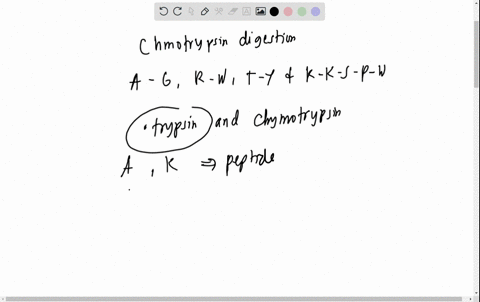 Chmotrypsin digestion
A - G, R - W, T - Y & K - K - S - P - W
• trypsin and chymotrypsin
A, K ⇒ peptide